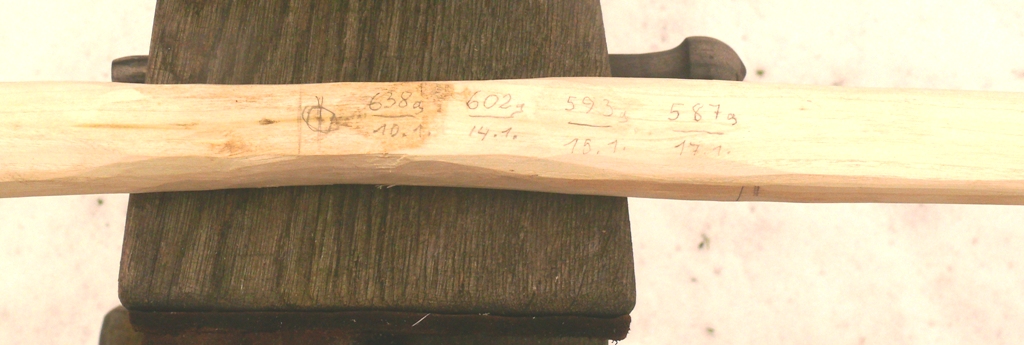 638g 602g 593g 587g
10.1. 14.1. 15.1. 17.1.